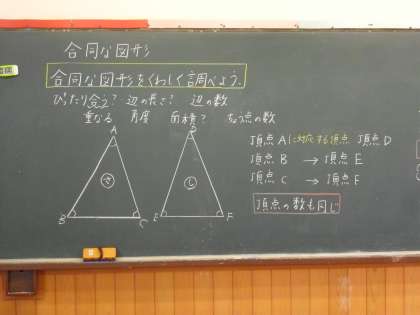 合同な図形
合同な図形をくわしく調べよう。
ぴったり合う? 辺の長さ? 辺の数
重なる 角度 面積? ちょう点の数
A
B
C
さ
D
E
F
し
頂点 Aに対応する頂点 頂点 D
頂点 B → 頂点 E
頂点 C → 頂点 F
頂点の数も同じ